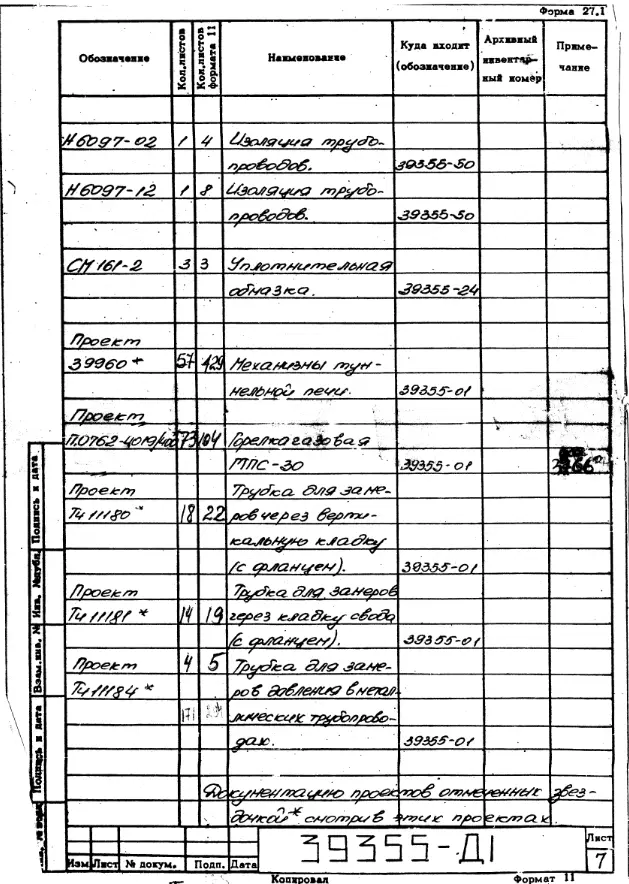 Форма 27.1
Обозначение Кол.листов Кол.листов формата 11 Наименование Куда входит (обозначение) Архивный инвентар- ный номер Приме- чание
Н6097-02 1 4 Изоляция трубо-
проводов. 39355-50
Н6097-12 1 8 Изоляция трубо-
проводов. 39355-50
СМ 161-2 3 3 Уплотнительная
обмазка. 39355-24
Проект
39960* 57 429 Механизмы тун-
нельной печи. 39355-01
Проект
П.0762-4019/400 73 104 Горелка газовая
ГПС-30 39355-01
Проект Трубка для заме-
Тч 11180* 18 22 ров через верти-
кальную кладку
(с фланцем). 39355-01
Проект Трубка для замеров
Тч 11181* 14 19 через кладку свода
(с фланцем). 39355-01
Проект 4 5 Трубка для заме-
Тч 11184* ров давления в метал-
лических трубопрово-
дах. 39355-01
Документацию проектов отмеченных звез-
дочкой* смотри в этих проектах.
Подпись и дата
Инв. № дубл.
Взам.инв. №
Подпись и дата
Изм Лист № докум. Подп. Дата
39355-Д1
Лист
7
Копировал Формат 11